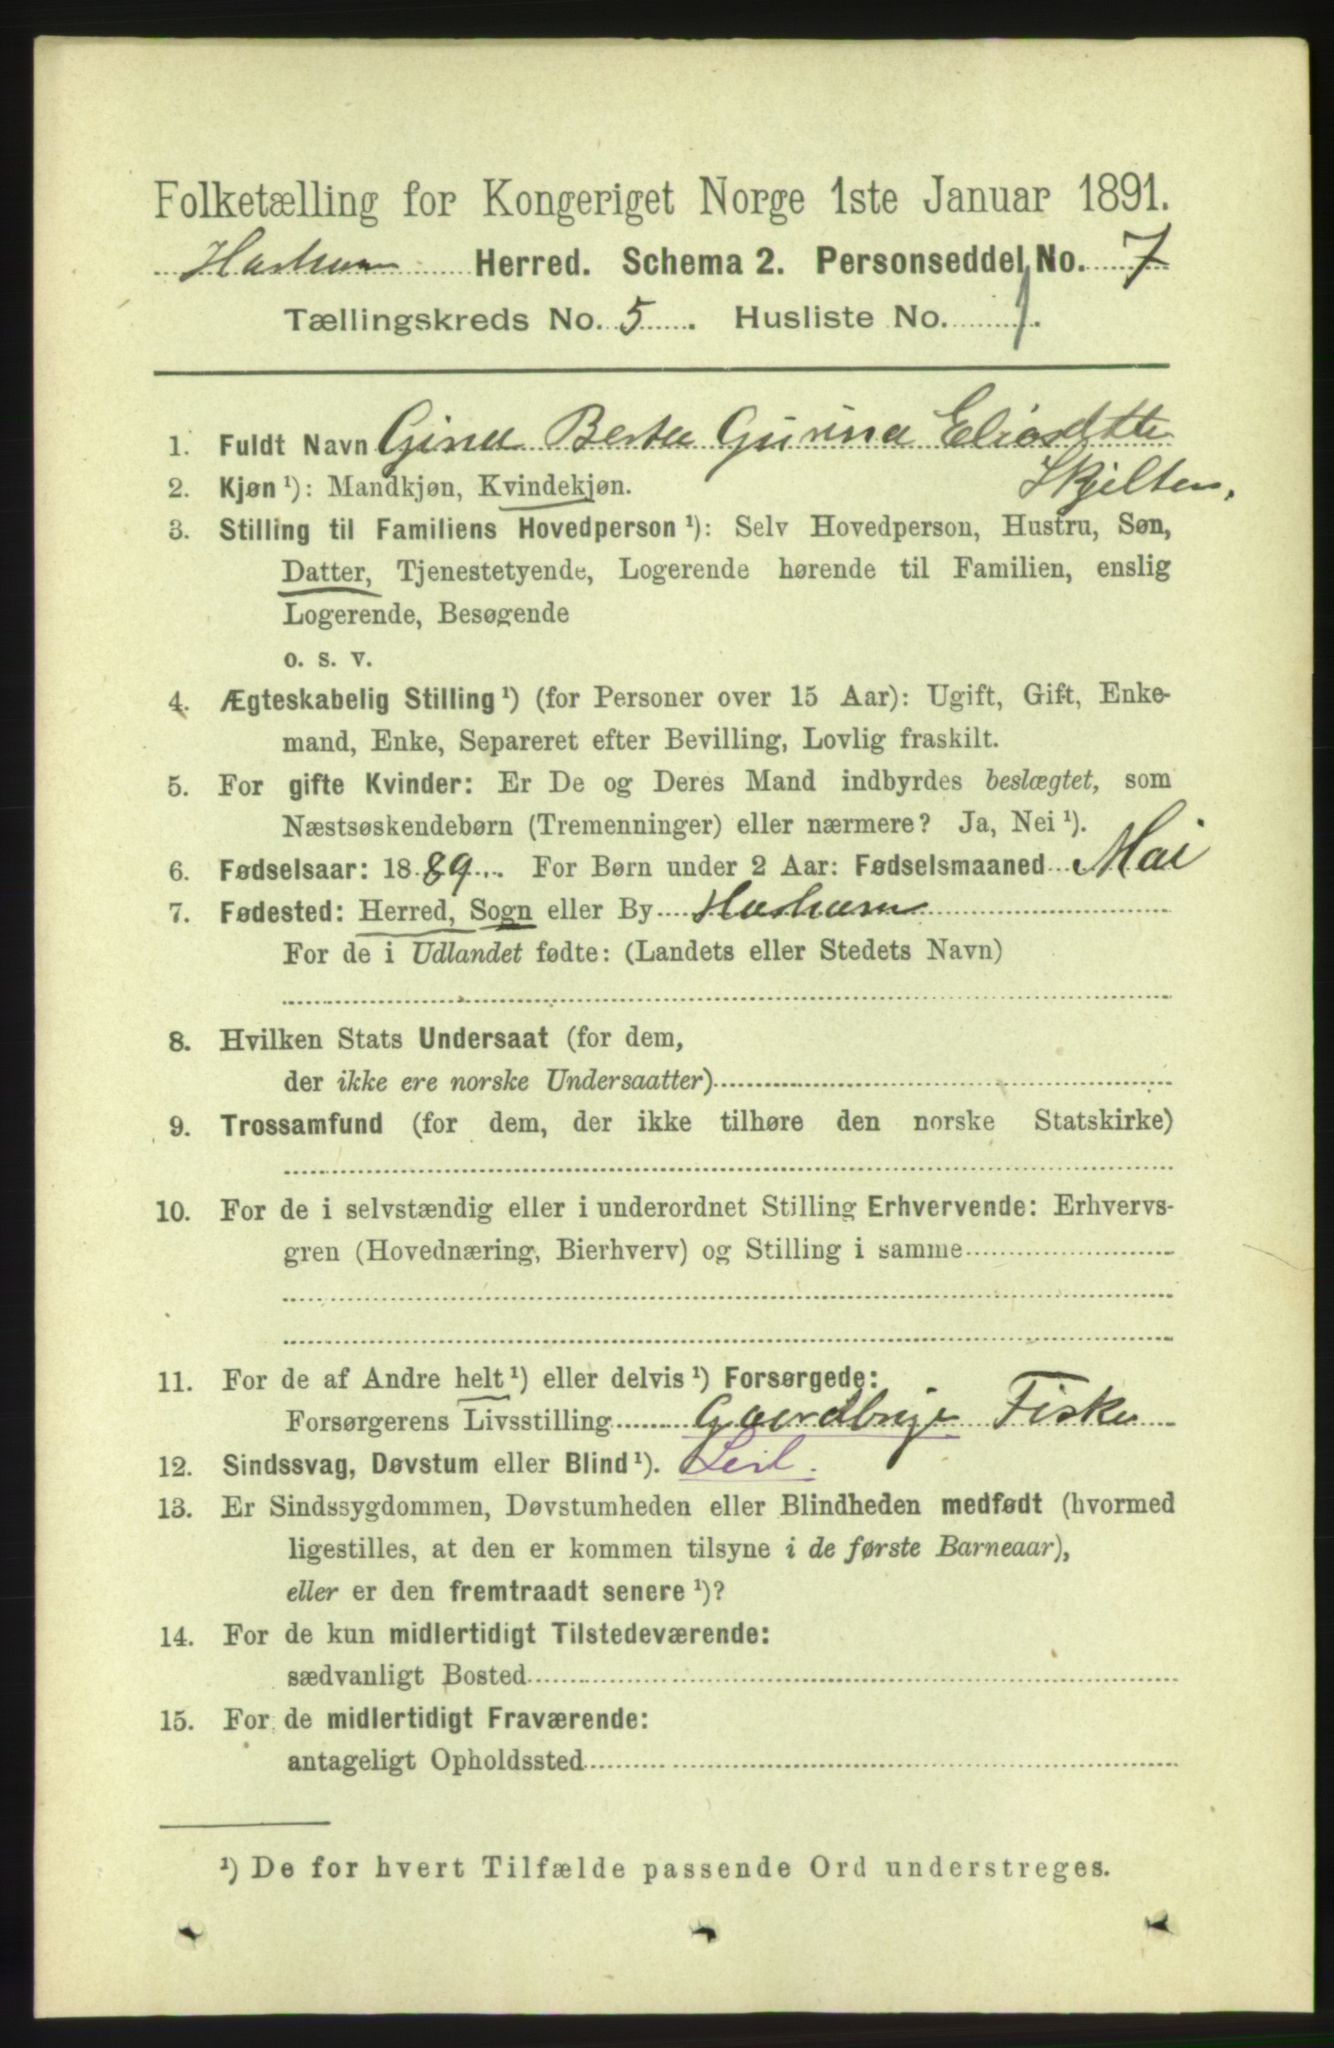 Folketælling for Kongeriget Norge 1ste Januar 1891.
Harham Herred. Schema 2. Personseddel No. 7
Tællingskreds No. 5. Husliste No. 1.
1. Fuldt Navn Gina Berta Gurina
Skjelten.
2. Kjøn ¹): Mandkjøn, Kvindekjøn.
3. Stilling til Familiens Hovedperson ¹): Selv Hovedperson, Hustru, Søn,
Datter, Tjenestetyende, Logerende hørende til Familien, enslig
Logerende, Besøgende
o. s. v.
4. Ægteskabelig Stilling ¹) (for Personer over 15 Aar): Ugift, Gift, Enke-
mand, Enke, Separeret efter Bevilling, Lovlig fraskilt.
5. For gifte Kvinder: Er De og Deres Mand indbyrdes beslægtet, som
Næstsøskendebørn (Tremenninger) eller nærmere? Ja, Nei ¹).
6. Fødselsaar: 1889. For Børn under 2 Aar: Fødselsmaaned Mai
7. Fødested: Herred, Sogn eller By Harham
For de i Udlandet fødte: (Landets eller Stedets Navn)
8. Hvilken Stats Undersaat (for dem,
der ikke ere norske Undersaatter)
9. Trossamfund (for dem, der ikke tilhøre den norske Statskirke)
10. For de i selvstændig eller i underordnet Stilling Erhvervende: Erhvervs-
gren (Hovednæring, Bierhverv) og Stilling i samme
11. For de af Andre helt ¹) eller delvis ¹) Forsørgede:
Forsørgerens Livsstilling Gaardbruge Fisker
12. Sindssvag, Døvstum eller Blind ¹).
13. Er Sindssygdommen, Døvstumheden eller Blindheden medfødt (hvormed
ligestilles, at den er kommen tilsyne i de første Barneaar),
eller er den fremtraadt senere ¹)?
14. For de kun midlertidigt Tilstedeværende:
sædvanligt Bosted
15. For de midlertidigt Fraværende:
antageligt Opholdssted
¹) De for hvert Tilfælde passende Ord understreges.